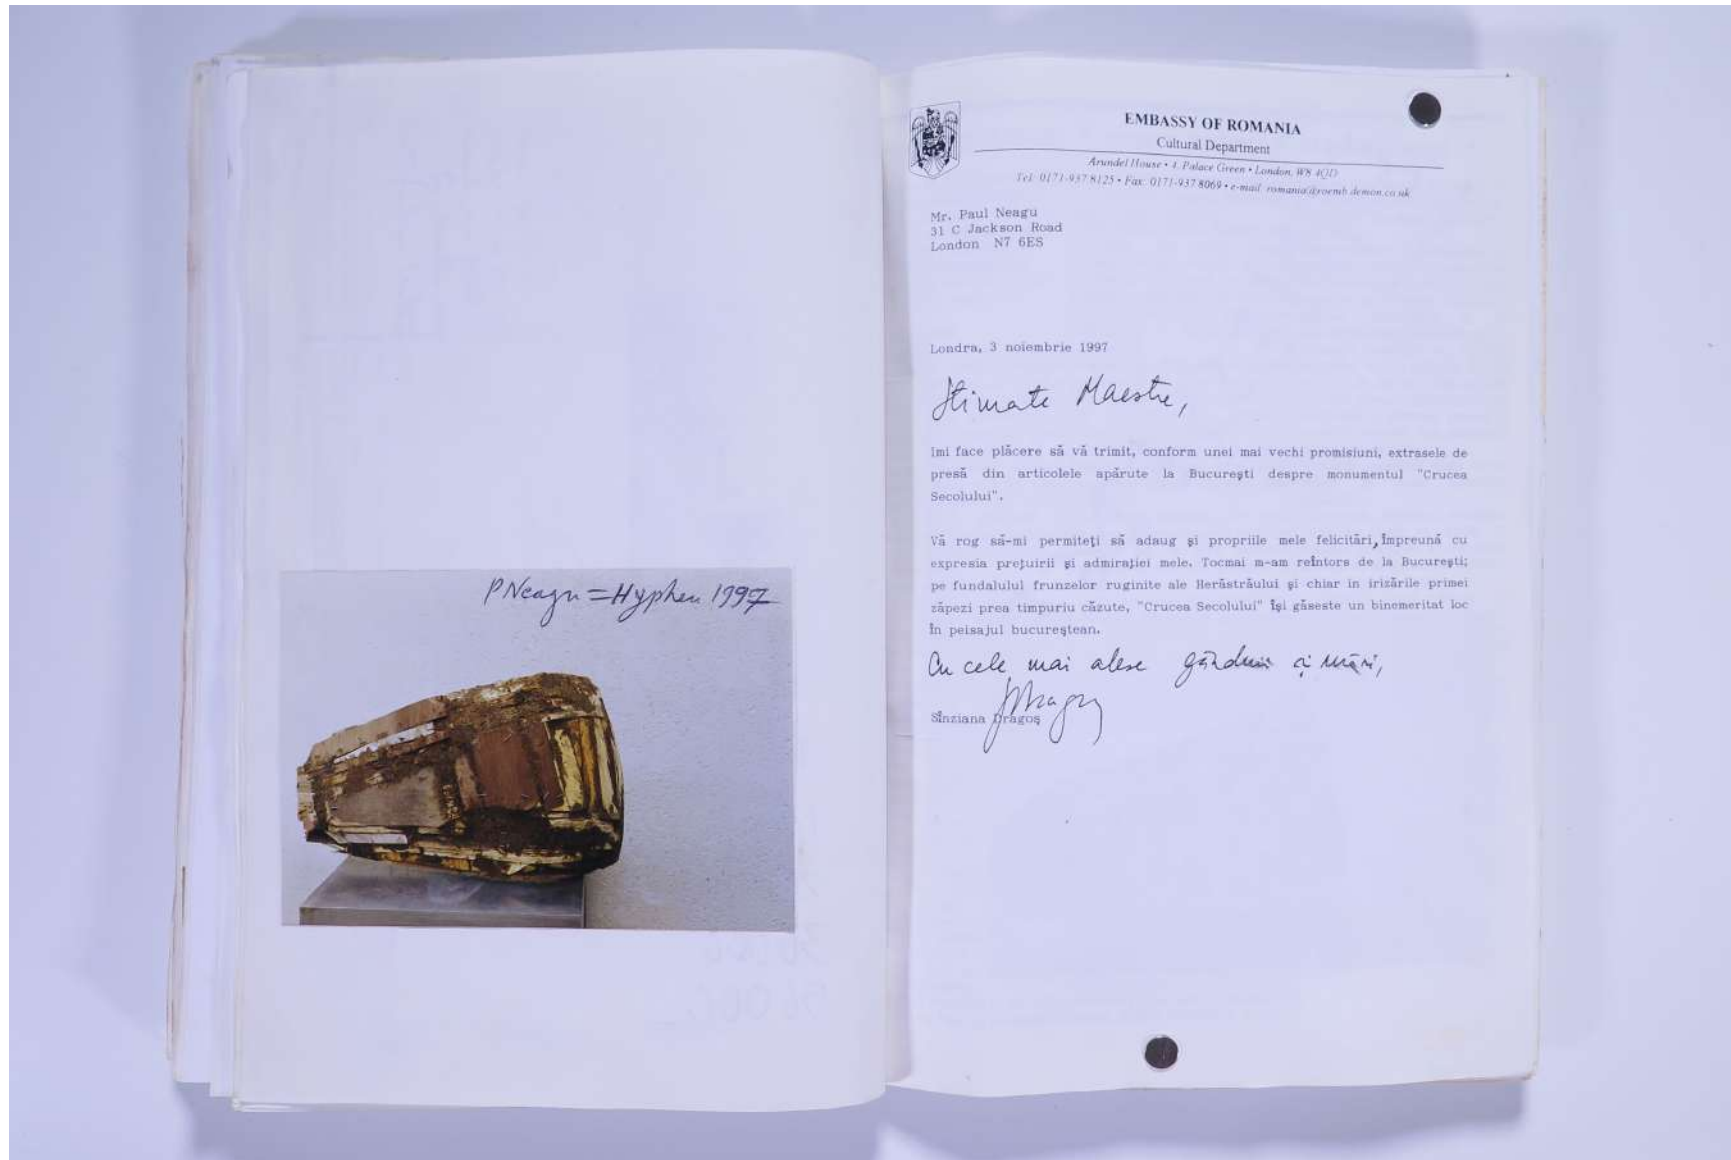 P Neagu = Hyphen 1997
EMBASSY OF ROMANIA
Cultural Department
Arundel House • 4, Palace Green • London, W8 4QD
Tel: 0171-937 8125 • Fax: 0171-937 8069 • e-mail: romania@roemb.demon.co.uk
Mr. Paul Neagu
31 C Jackson Road
London N7 6ES
Londra, 3 noiembrie 1997
Stimate Maestre,
Imi face plăcere să vă trimit, conform unei mai vechi promisiuni, extrasele de
presă din articolele apărute la Bucureşti despre monumentul "Crucea
Secolului".
Vă rog să-mi permiteţi să adaug şi propriile mele felicitări, împreună cu
expresia preţuirii şi admiraţiei mele. Tocmai m-am reîntors de la Bucureşti;
pe fundalulul frunzelor ruginite ale Herăstrăului şi chiar in irizările primei
zăpezi prea timpuriu căzute, "Crucea Secolului" îşi găseste un binemeritat loc
în peisajul bucureştean.
Cu cele mai alese gânduri și urări,
Sînziana Dragoş